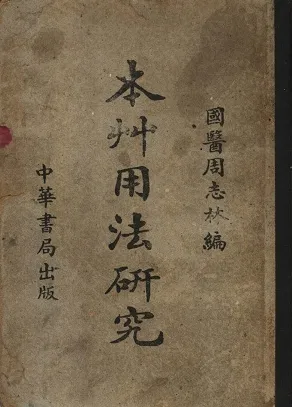 國醫周志林編
本艸用法研究
中華書局出版